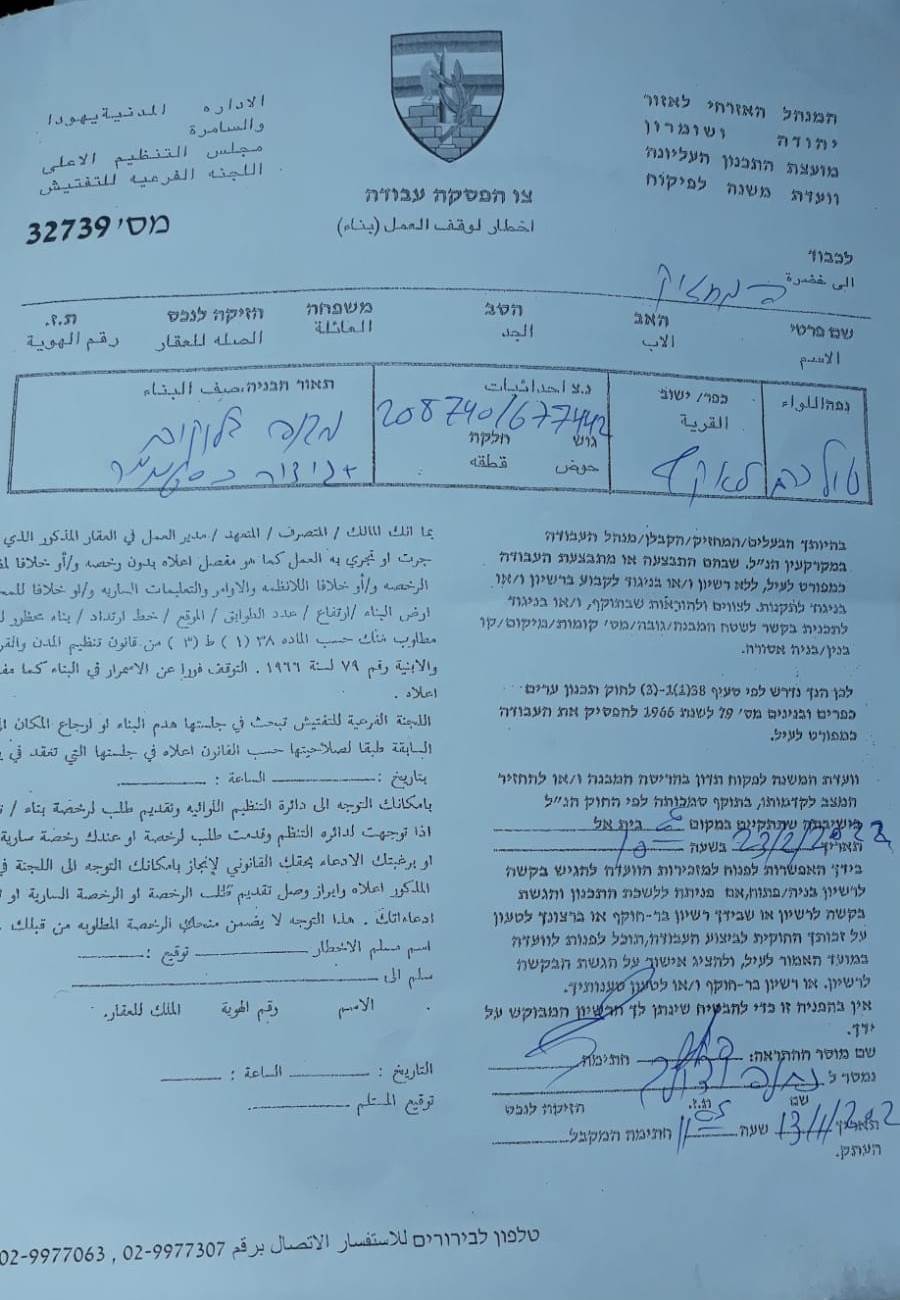 המנהל האזרחי לאזור
יהודה ושומרון
מועצת התכנון העליונה
וועדת משנה לפיקוח
الاداره المدنية يهودا
والسامرة
مجلس التنظيم الاعلى
اللجنه الفرعيه للتفتيش
צו הפסקה עבודה
اخطار لوقف العمل (بناء)
מס' 32739
לכבוד
الى حضرة המחזיק
שם פרטי האב הסב משפחה הזיקה לנכס ת.ז.
الاسم الاب الجد العائلة الصله للعقار رقم الهوية
נפה اللواء
כפר/ ישוב
القرية
נ.צ احداثيات
208740/677442
גוש חלקה
حوض قطقه
תאור הבניה، صيف البناء
טול כרם
בהיותך הבעלים/המחזיק/הקבלן/מנהל העבודה
במקרקעין הנ"ל, שבהם התבצעה או מתבצעת העבודה
כמפורט לעיל, ללא רשיון ו/או בניגוד לקבוע ברשיון ו/או
בניגוד לתקנות. לצווים ולהוראות שבתוקף, ו/או בניגוד
לתכנית בקשר לשטח המבנה/גובה/מס' קומות/מיקום/קו
בנין/בניה אסורה.
לכן הנך נדרש לפי סעיף 38(1)-(3) לחוק תכנון ערים
כפרים ובנינים מס' 79 לשנת 1966 להפסיק את העבודה
כמפורט לעיל.
וועדת המשנה לפקוח תדון בהריסת המבנה ו/או להחזיר
המצב לקדמותו, בתוקף סמכותה לפי החוק הנ"ל
בישיבתה שתתקיים במקום בית אל
תאריך 23/2/2022 בשעה 10
בידך האפשרות לפנות למזכירות הוועדה להגיש בקשה
לרשיון בניה/פתוח, אם פניתה ללשכת התכנון והגשת
בקשה לרשיון או שבידך רשיון בר-תוקף או ברצונך לטעון
על זכותך החוקית לביצוע העבודה, תוכל לפנות לוועדה
במועד האמור לעיל, ולהציג אישור על הגשת הבקשה
לרשיון. או רשיון בר-תוקף ו/או לטעון טענותיך.
אין בהפניה זו כדי להבטיח שינתן לך הרשיון המבוקש על
ידך.
שם מוסר ההתראה: חתימה
נמסר ל
שם ת.ז. הזיקה לנכס
תאריך שעה חתימה המקבל
העתק.
بما انك المالك / المتصرف / المتعهد / مدير العمل في العقار المذكور الذي
جرت او تجري به العمل كما هو مفصل اعلاه بدون رخصه و/أو خلافا
الرخصه و/أو خلافا للانظمه والاوامر والتعليمات الساريه و/او خلافا
ارض البناء /ارتفاع / عدد الطوابق / الموقع / خط ارتداد / بناء محظور
مطلوب منك حسب الماده ٣٨ (١) ط (٣) من قانون تنظيم المدن
والابنية رقم ٧٩ لسنة ١٩٦٦ . التوقف فورا عن الاسمرار في البناء كما
اعلاه .
اللجنة الفرعية للتفتيش تبحث في جلستها هدم البناء او ارجاع المكان
السابقة طبقا لصلاحيتها حسب القانون اعلاه في جلستها التي تنعقد في
بتاريخ : الساعة :
بامكانك التوجه الى دائرة التنظيم اللوائيه وتقديم طلب لرخصة بناء /
اذا توجهت لدائره التنظم وقدمت طلب لرخصة او عندك رخصة سارية
او برغبتك الادعاء بحقك القانوني لإنجاز بامكانك التوجه الى اللجنة
المذكور اعلاه وابراز وصل تقديم طلب الرخصة او الرخصة السارية او
ادعاءاتك . هذا التوجه لا يضمن منحك الرخصة المطلوبه من قبلك .
اسم مسلم الاخطار توقيع :
سلم الى
الاسم رقم الهوية الملك للعقار.
التاريخ : الساعة :
توقيع المستلم
טלפון לבירורים للاستفسار الاتصال برقم 02-9977307 , 02-9977063